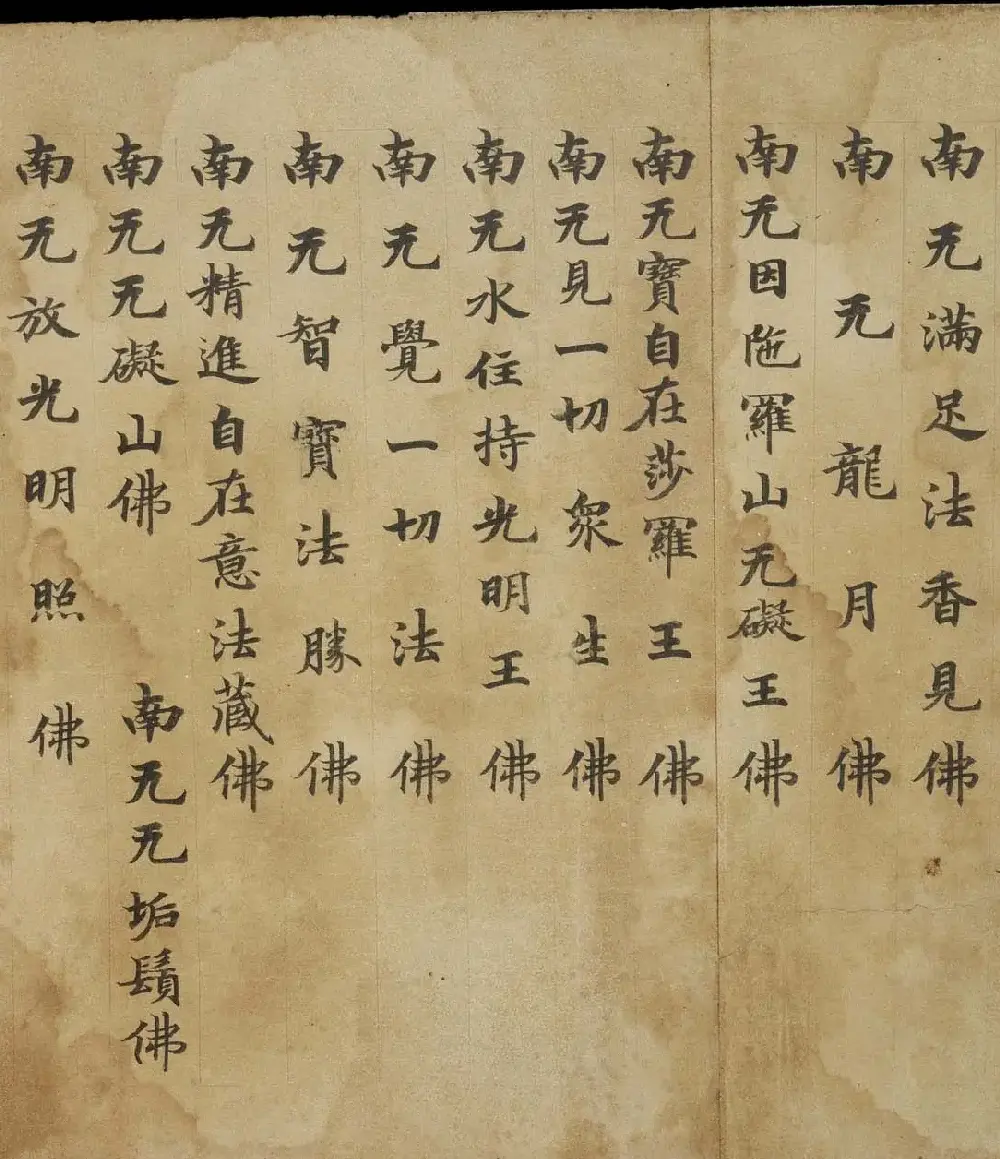 南无满足法香見佛
南无龍月佛
南无因陁羅山无礙王佛
南无寶自在莎羅王佛
南无見一切衆生佛
南无水住持光明王佛
南无覺一切法佛
南无智寶法勝佛
南无精進自在意法藏佛
南无无礙山佛 南无无垢鬚佛
南无放光明照佛